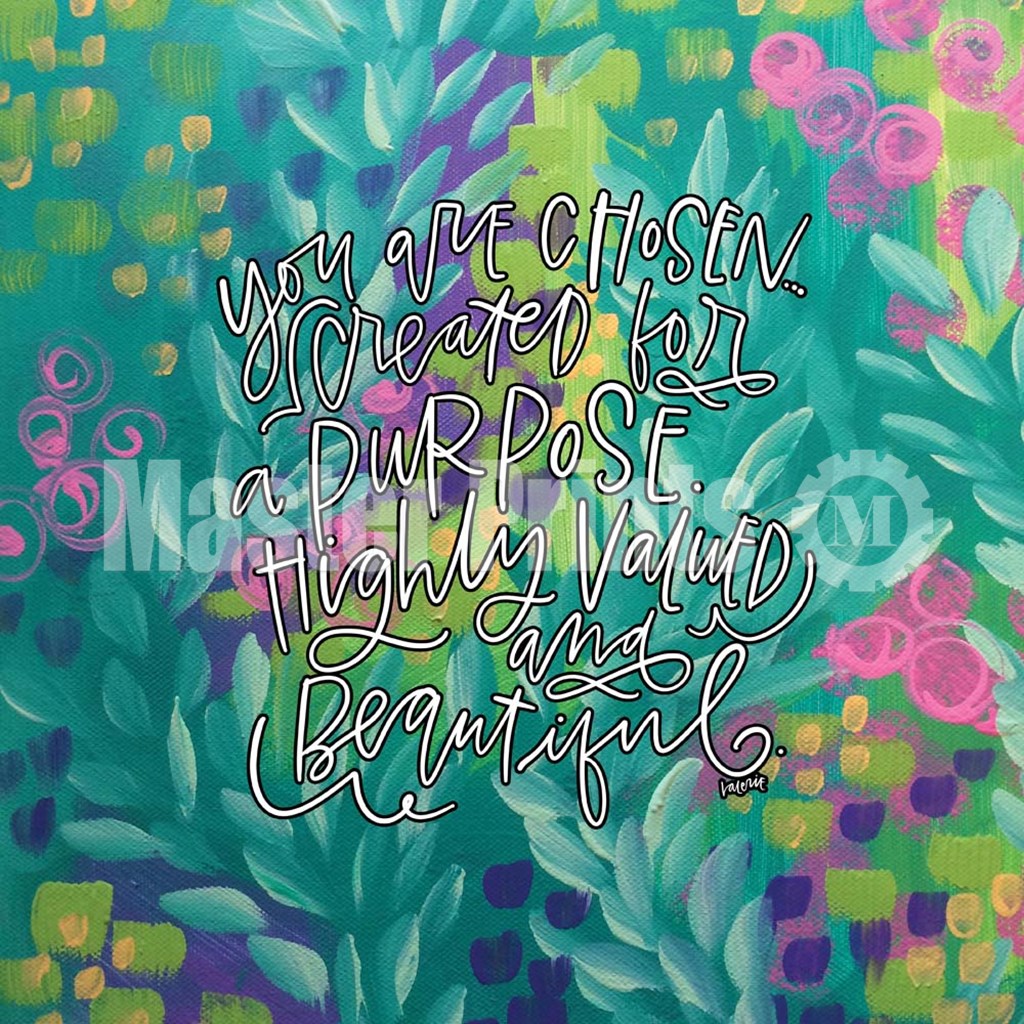 you are CHOSEN...
Created for
a PURPOSE.
Highly VALUED
and
Beautiful.
Valerie
Master Prints M